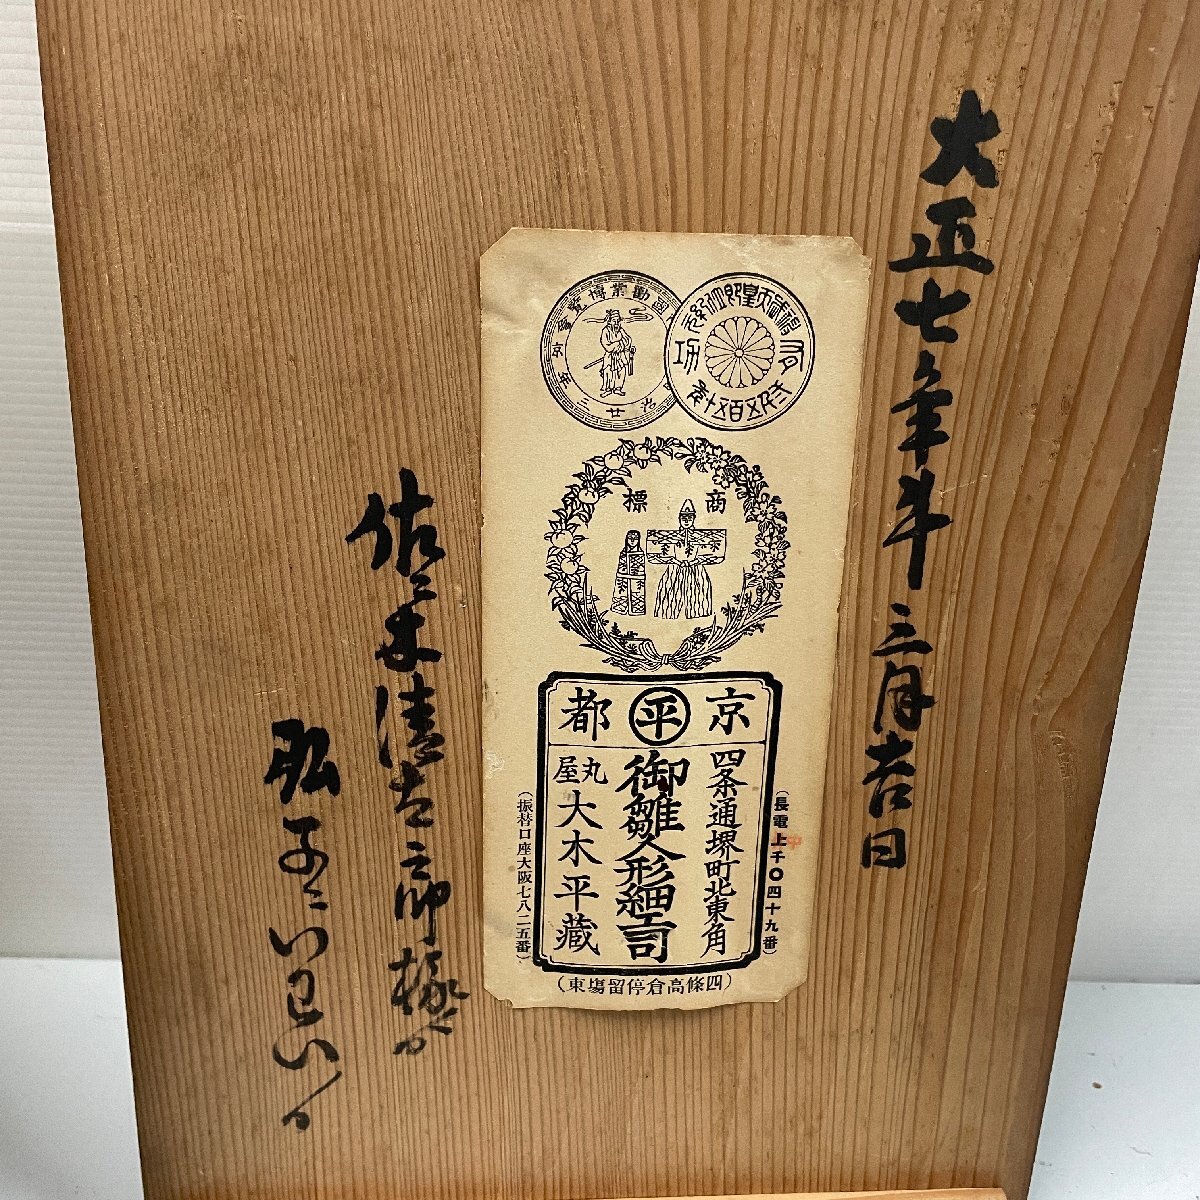 大正七年
三月吉日
商標
京都
平
四条通堺町北東角
御雛人形細工司
丸屋
大木平藏
(長電上千〇四十九番)
(振替口座大阪七八二五番)
(四條高倉停留塲東)
佐々木清太郎様ゟ
弘子之いわい